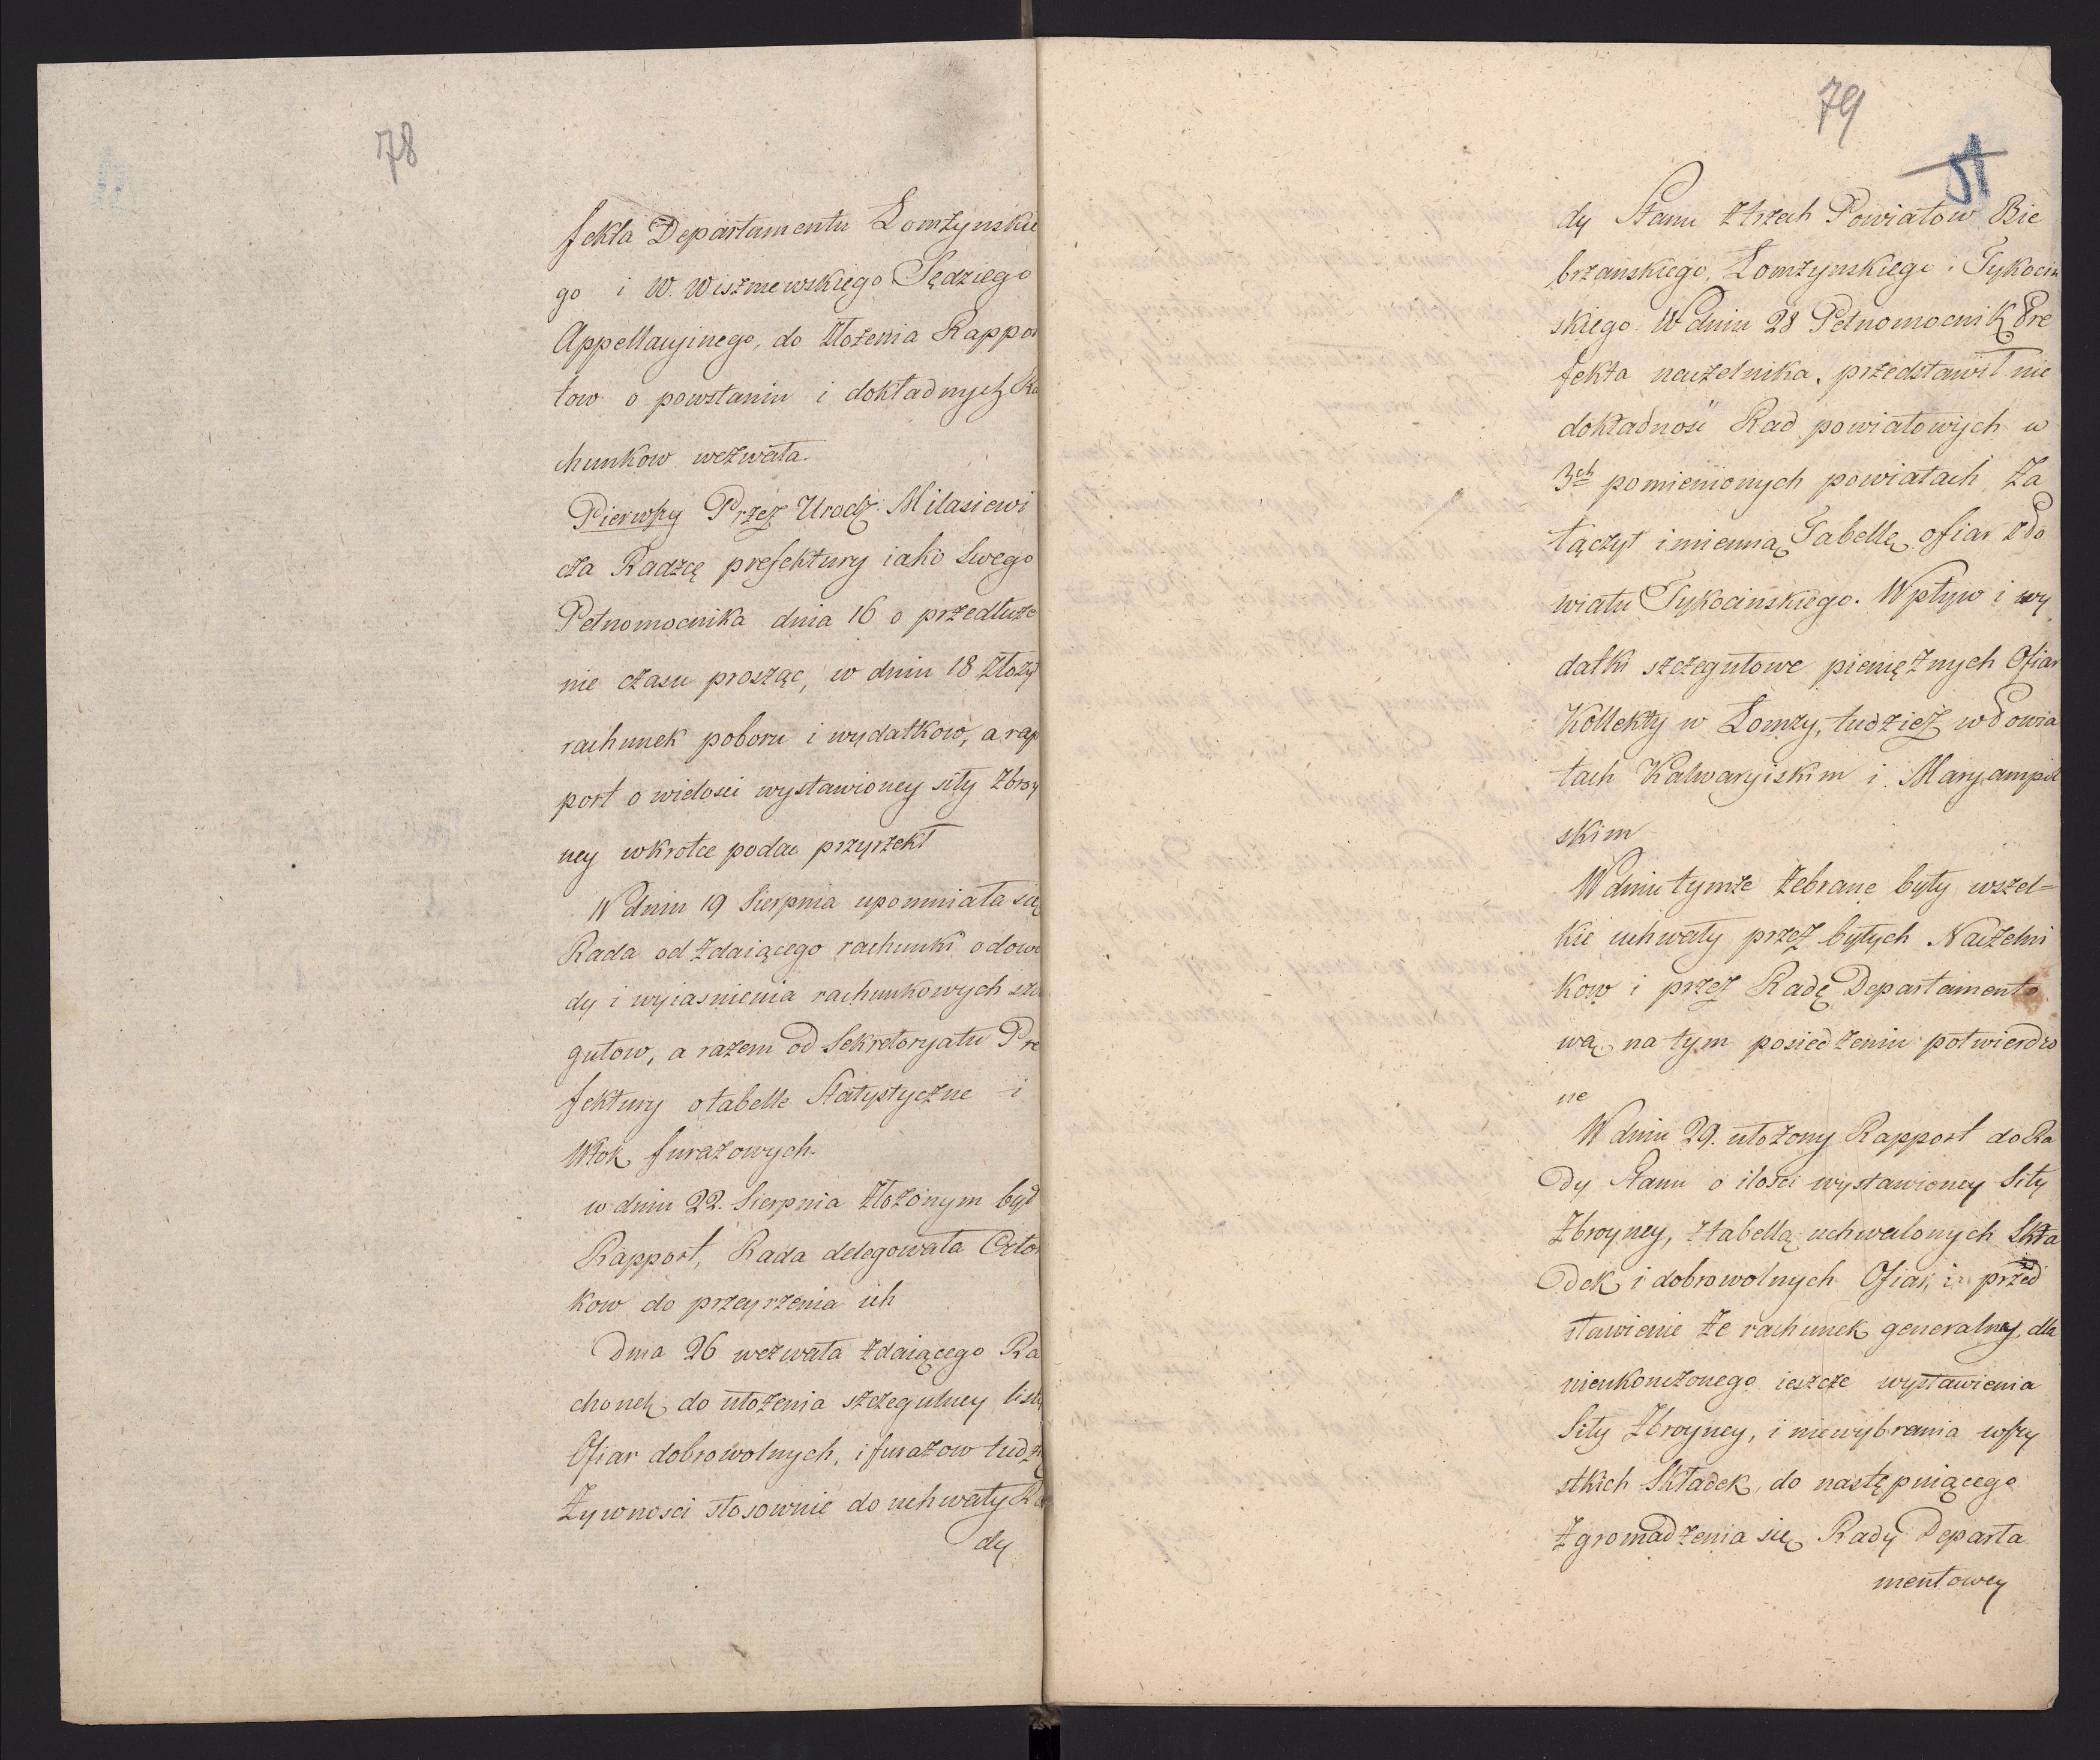 78
fekta Departamentu Łomżynskie
go i W. Wiszniewskiego Sędziego
Appellacyinego, do złożenia Rappor
tow o powstaniu i dokładnych Ra
chunkow wezwała.
Pierwszy Przez Urodz. Milasiewi
cza Radzcę prefektury iako Swego
Pełnomocnika dnia 16 o przedłuże
nie czasu prosząc, w dniu 18 złożył
rachunek poboru i wydatkow, a rap
port o wielosci wystawioney siły zbroy
ney wkrotce podac przyrzekł
W dniu 19 Sierpnia upomniała się
Rada od zdaiącego rachunki o dowo
dy i wyiasnienia rachunkowych szcze
gułow, a razem od Sekretoryatu Pre
fektury o tabelle Statystyczne i
Włok furażowych.
w dniu 22. Sierpnia złożonym był
Rapport, Rada delegowała Człon
kow do przeyrzenia ich
Dnia 26 wezwała zdaiącego Ra
chonek do ułożenia szczegulney listy
Ofiar dobrowolnych, i furażow tudzież
Żywnosci stosownie do uchwały Ra
dy
79
51
dy Stanu z trzech Powiatow Bie
brzanskiego, Łomżynskiego i Tykocin
skiego W dniu 28 Pełnomocnik Pre
fekta naczelnika, przedstawił nie
dokładnosc Rad powiatowych w
3ch pomienionych powiatach, Za
łączył imienną Tabellę ofiar Po
wiatu Tykocinskiego. Wpływ i wy
datki szczegułowe pieniężnych Ofiar
Kollekty w Łomzy, tudzież w Powia
tach Kalwaryiskim i Maryampol
skim
W dniu tymże zebrane były wszel=
kie uchwały przez byłych Naczelni
kow i przez Radę Departamento
wą na tym posiedzeniu potwierdzo
ne
W dniu 29. ułożony Rapport do Ra
dy Stanu o ilosci wystawioney Siły
Zbroyney, z tabellą uchwalonych Skła
dek i dobrowolnych Ofiar, i przed
stawienie że rachunek generalny, dla
nieukonczonego ieszcze wystawienia
Siły Zbroyney, i niewybrania wszy
stkich Składek, do następuiącego
Zgromadzenia się Rady Departa
mentowey